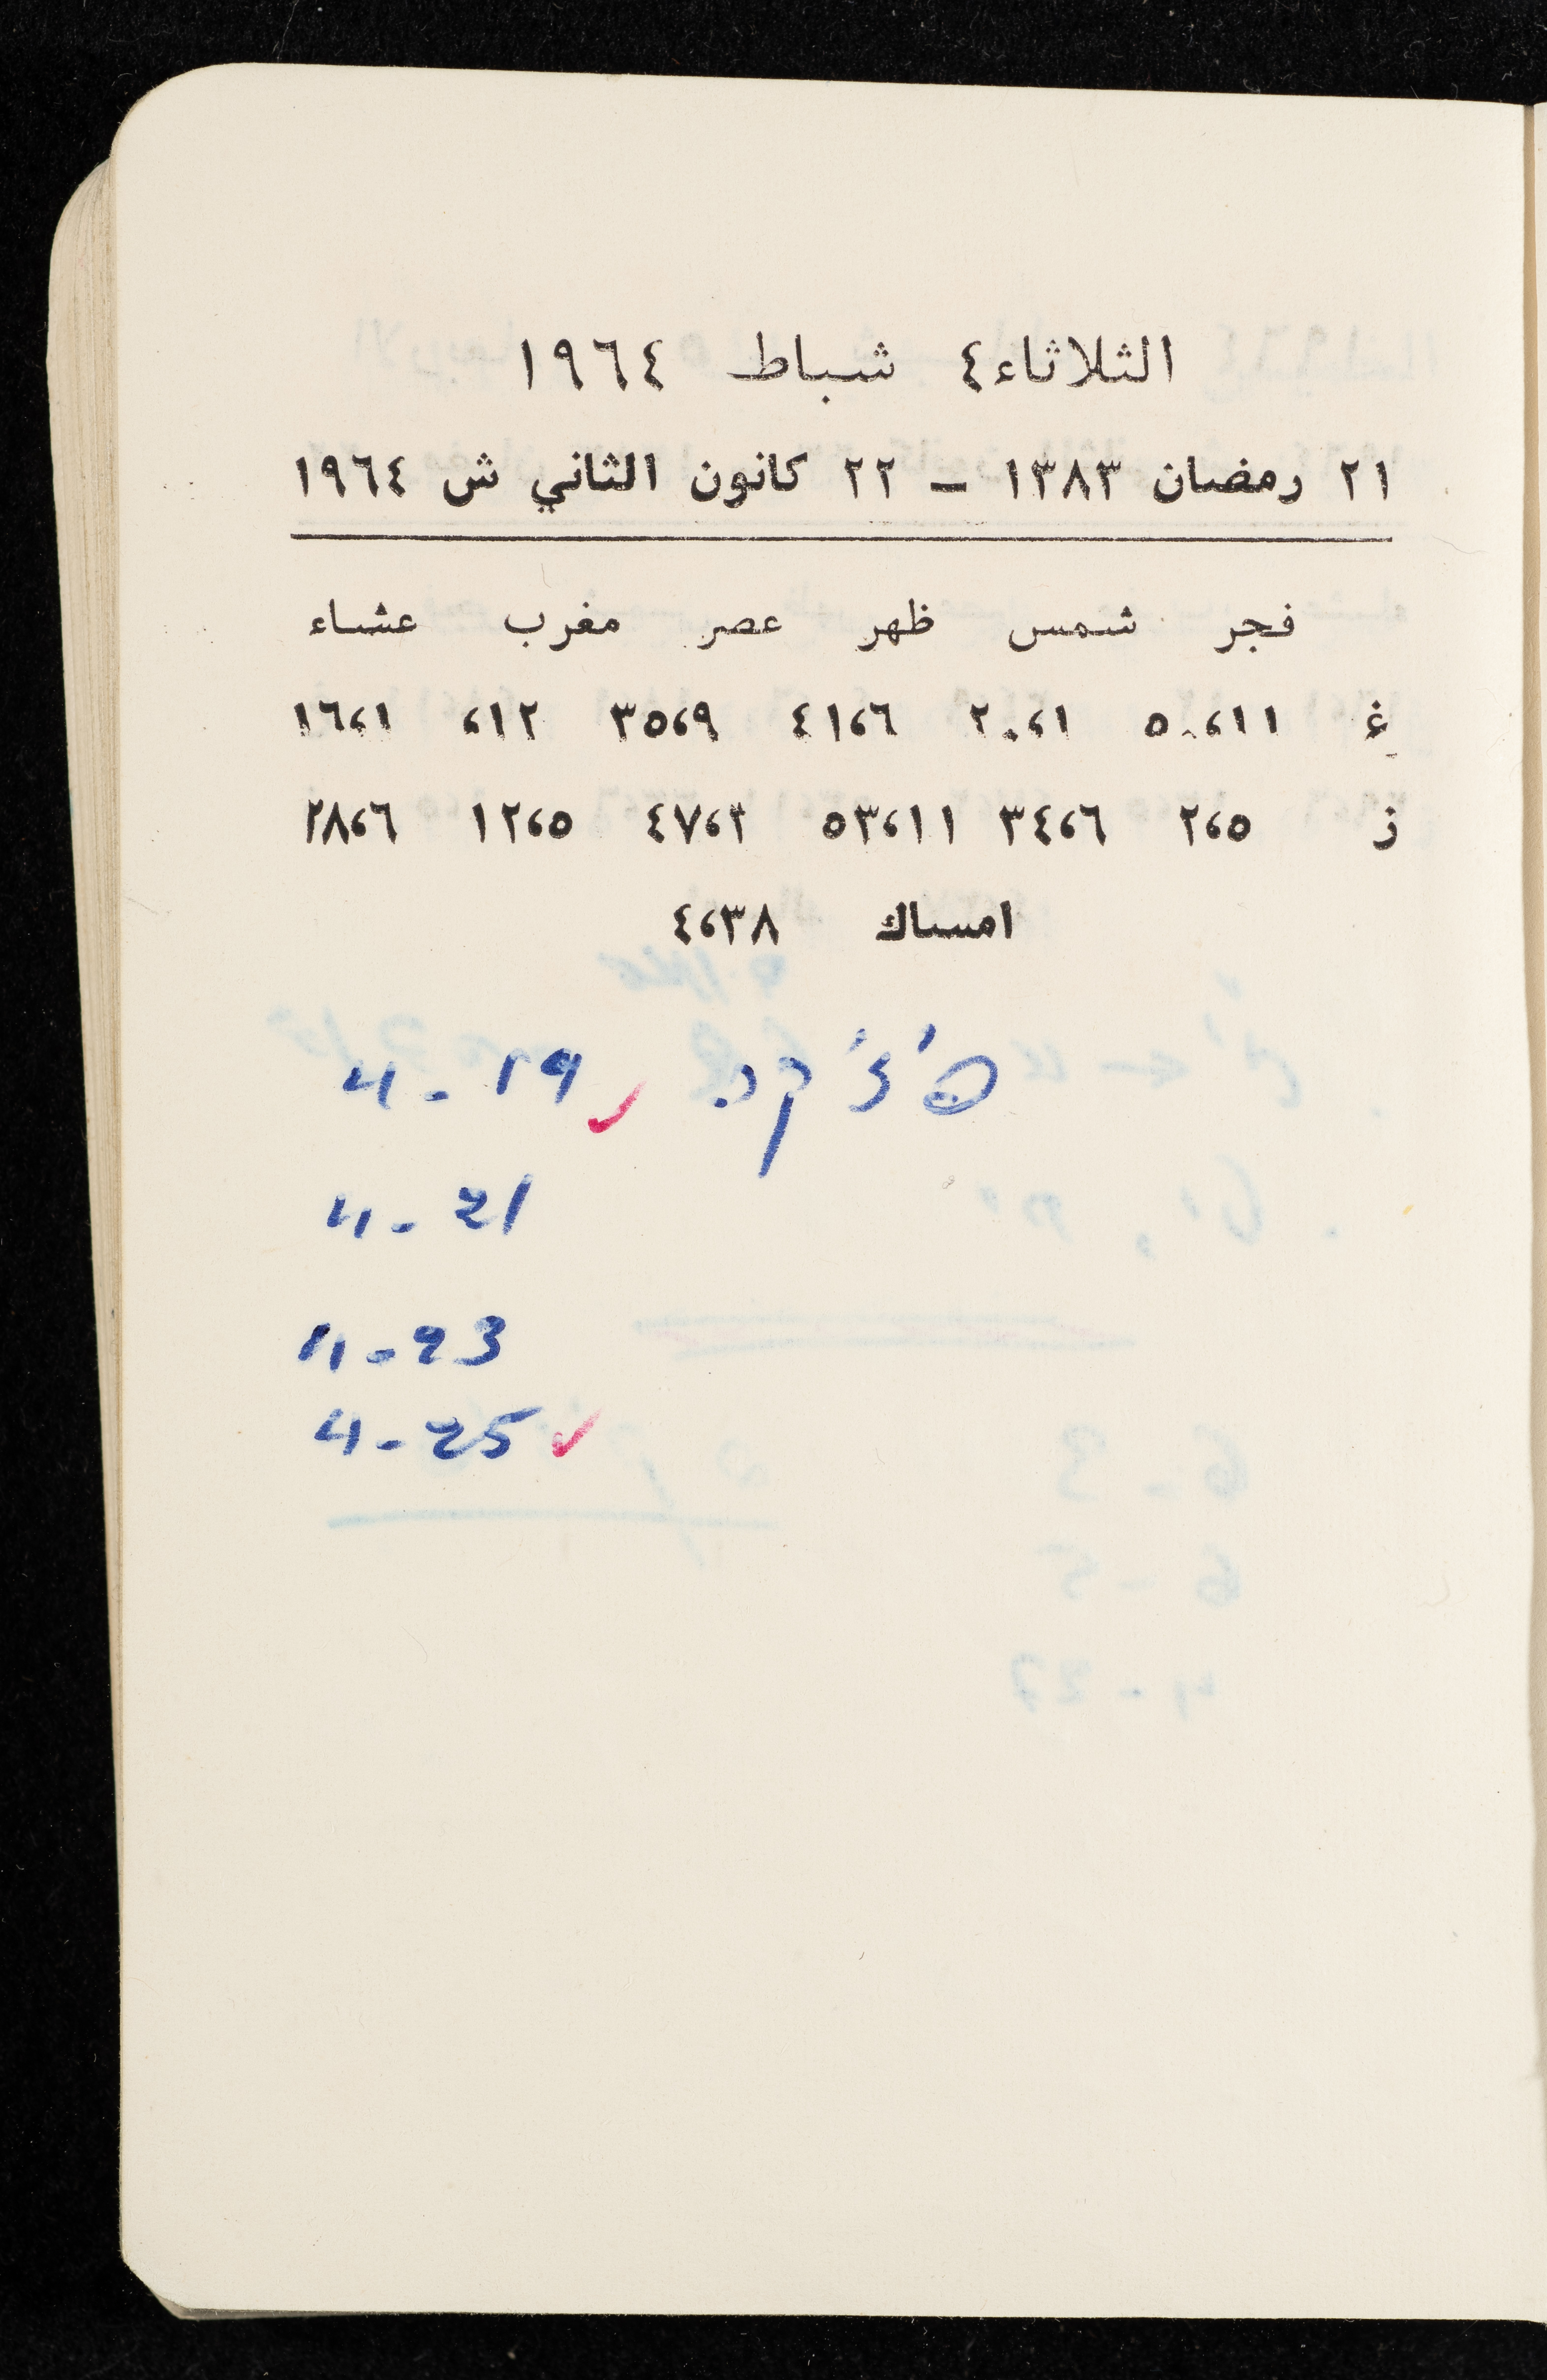 الثلاثاء ٤ شباط ١٩٦٤
٢١ رمضان ١٣٨٣ – ٢٢ كانون الثاني ش ١٩٦٤
فجر شمس ظهر عصر مغرب عشاء
غ ٥٠،١١ ٢٠،١ ٤١،٦ ٣٥،٩ ١٢، ١٦،١
ز ٢،٥ ٣٤،٦ ٥٣،١١ ٤٧،٢ ١٢،٥ ٢٨،٦
امساك ٤،٣٨
4 - 19
4 - 21
4 - 23
4 - 25